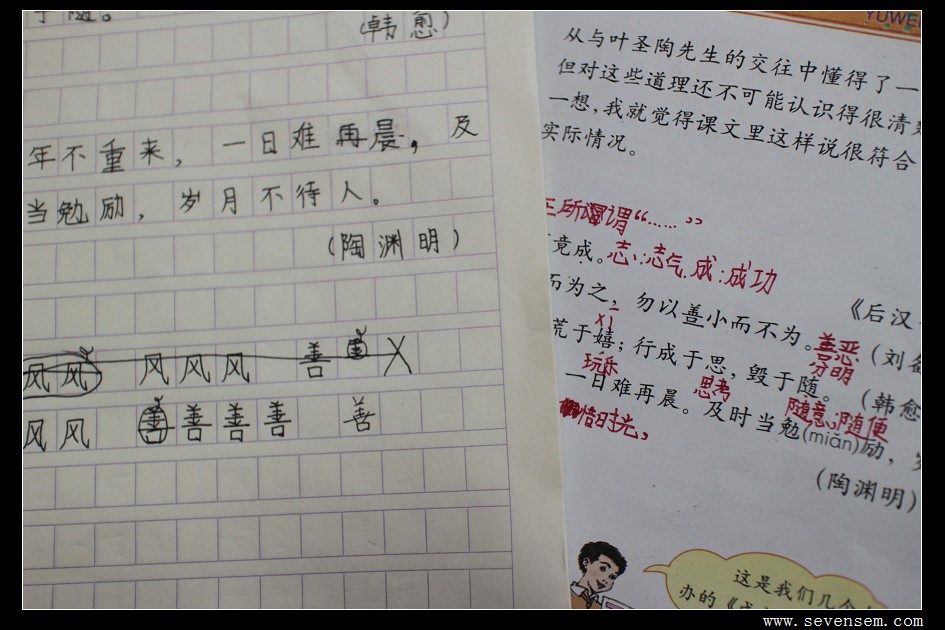 于随。
(韩愈)
年不重来，一日难再晨，及
当勉励，岁月不待人。
(陶渊明)
风风 风风风 善
风风 善善善善 善
YUWE
从与叶圣陶先生的交往中懂得了一
但对这些道理还不可能认识得很清
一想，我就觉得课文里这样说很符合
实际情况。
所谓“……”
竟成。志:志气 成:成功
《后汉
而为之，勿以善小而不为。
善恶
分明
(刘备
荒于嬉；行成于思，毁于随。
玩乐
思考
随意;随便
(韩愈
一日难再晨。及时当勉(miǎn)励，岁
惜时光，
(陶渊明)
这是我们几个
办的《
www.sevensem.com